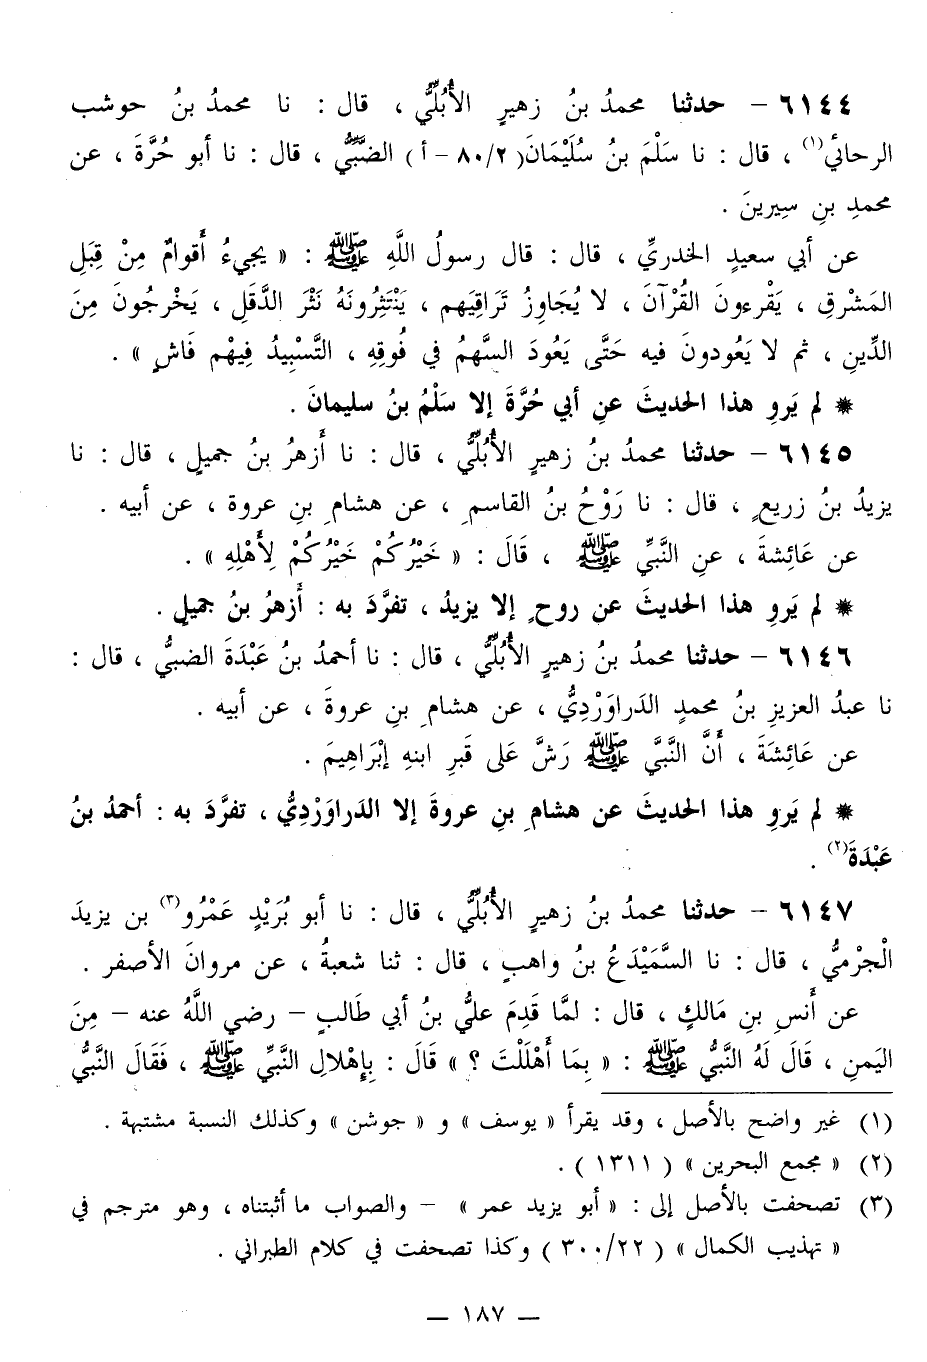 ٦١٤٤ – حدثنا محمدُ بنُ زهيرٍ الأُبُلِّيُّ ، قال : نا محمدُ بنُ حوشب
الرحائي(١) ، قال : نا سَلْمَ بنُ سُلَيْمَانَ( ٨٠/٢ – أ ) الضَّبِّيُّ ، قال : نا أبو حُرَّةَ ، عن
محمدِ بنِ سِيرينَ .
عن أبي سعيدٍ الخدريِّ ، قال : قال رسولُ اللَّهِ ﷺ : « يجيءُ أَقوامٌ مِنْ قِبَلِ
المَشْرقِ ، يَقْرءونَ القُرْآنَ ، لا يُجَاوِزُ تَرَاقِيَهم ، يَنْتَثِرُونَهُ نَثْرَ الدَّقَلِ ، يَخْرجُونَ مِنَ
الدِّينِ ، ثم لا يَعُودونَ فيه حَتَّى يَعُودَ السَّهمُ في فُوقِهِ ، التَّسْبِيدُ فِيْهم فَاشٍ » .
* لم يَروِ هذا الحديثَ عنِ أبي حُرَّةَ إلا سَلْمُ بنُ سليمانَ .
٦١٤٥ – حدثنا محمدُ بنُ زهيرٍ الأُبُلِّيُّ ، قال : نا أَزهرُ بنُ جميلٍ ، قال : نا
يزيدُ بنُ زريعٍ ، قال : نا رَوْحُ بنُ القاسمِ ، عن هشامِ بنِ عروة ، عن أبيه .
عن عَائِشةَ ، عنِ النَّبيِّ ﷺ ، قَالَ : « خَيْرُكُمْ خَيْرُكُمْ لِأَهْلِهِ » .
* لم يَروِ هذا الحديثَ عن روحٍ إلا يزيدُ ، تفرَّدَ به : أَزهرُ بنُ جميلٍ .
٦١٤٦ – حدثنا محمدُ بنُ زهيرٍ الأُبُلِّيُّ ، قال : نا أحمدُ بنُ عَبْدَةَ الضبيُّ ، قال :
نا عبدُ العزيزِ بنُ محمدٍ الدَراوَرْدِيُّ ، عن هشامِ بنِ عروةَ ، عن أبيه .
عن عَائِشَةَ ، أَنَّ النَّبيَّ ﷺ رَشَّ عَلى قَبرِ ابنهِ إبْرَاهِيمَ .
* لم يَروِ هذا الحديثَ عن هشامِ بنِ عروةَ إلا الدَراوَرْدِيُّ ، تفرَّدَ به : أحمدُ بنُ
عَبْدَةَ(٢) .
٦١٤٧ – حدثنا محمدُ بنُ زهيرٍ الأُبُلِّيُّ ، قال : نا أبو بُرَيْدٍ عَمْرُو(٣) بن يزيدَ
الْجَرْميُّ ، قال : نا السَّمَيْدَعُ بنُ واهبٍ ، قال : ثنا شعبةُ ، عن مروانَ الأصفر .
عن أَنسِ بنِ مَالكٍ ، قال : لمَّا قَدِمَ عليُّ بنُ أبي طَالبٍ – رضي اللَّهُ عنه – مِنَ
اليَمنِ ، قَالَ لَهُ النَّبيُّ ﷺ : « بِمَا أَهْلَلْتَ ؟ » قَالَ : بِإِهْلالِ النَّبيِّ ﷺ ، فَقَالَ النَّبيُّ
(١) غير واضح بالأصل ، وقد يقرأ « يوسف » و « جوشن » وكذلك النسبة مشتبهة .
(٢) « مجمع البحرين » ( ١٣١١ ) .
(٣) تصحفت بالأصل إلى : « أبو يزيد عمر » – والصواب ما أثبتناه ، وهو مترجم في
« تهذيب الكمال » ( ٣٠٠/٢٢ ) وكذا تصحفت في كلام الطبراني .
— ١٨٧ —